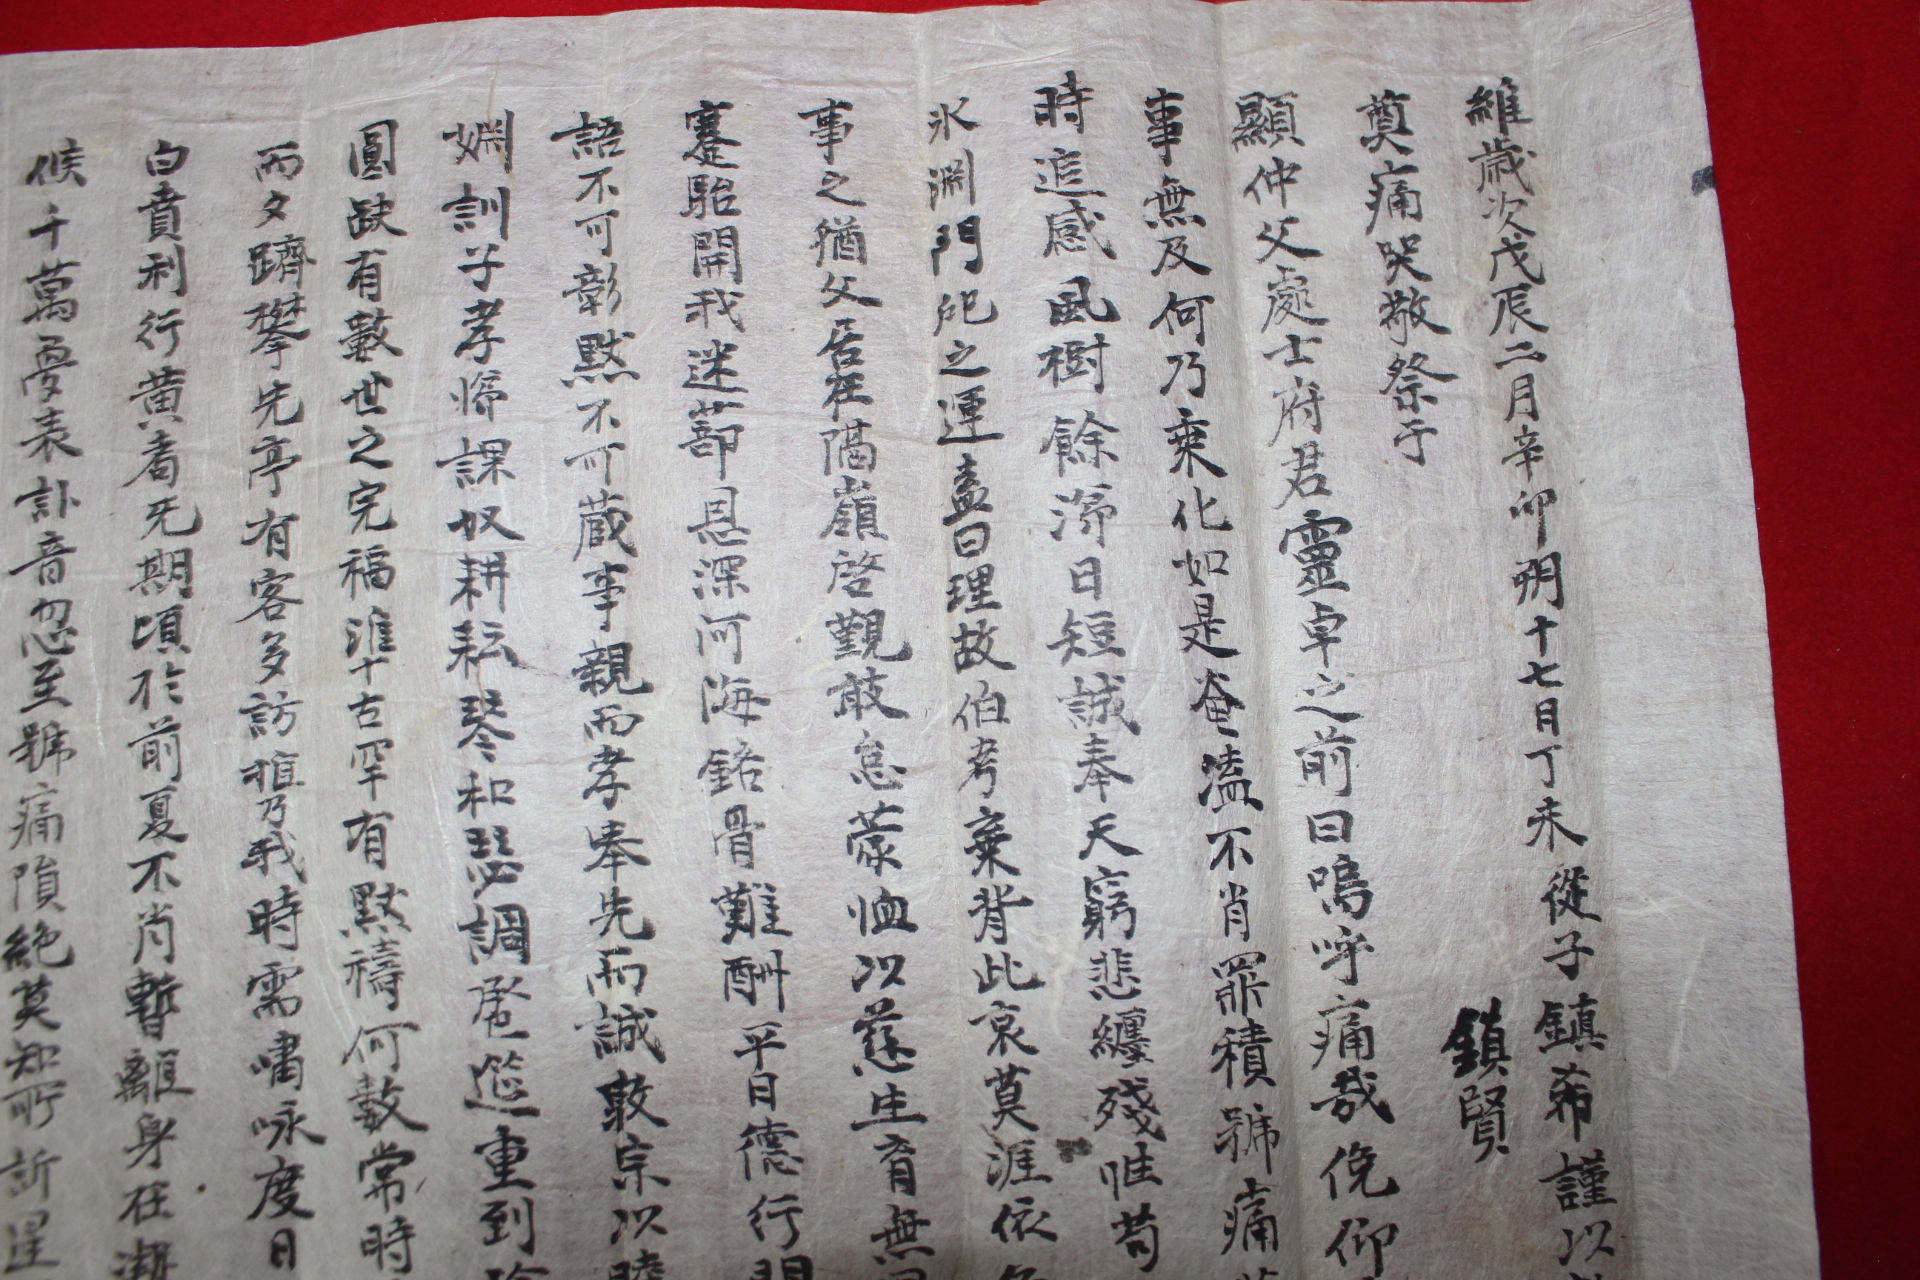 維歲次戊辰二月辛卯朔十七日丁未從子鎮希謹以
鎮賢
奠痛哭敬祭于
顯仲父處士府君靈卓之前曰嗚呼痛哉俛仰
事無及何乃乘化如是奄溘不肖罪積號痛
時追感風樹餘日短誠奉天窮悲纏殘惟苟
氷淵門祀之運盍曰理故伯考棄背此哀莫涯依
事之猶父居在隔嶺啓觀敢怠蒙恤以慈生育無
蹇駘開我迷蔀恩深河海銘骨難酬平日德行
語不可彰默不可蔵事親而孝奉先而誠敦宗以睦
婣訓子孝悌課奴耕耘琴和瑟調重到
圓缺有數世之完福淮古罕有默禱何數常時
而夕躋攀先亭有客多訪乃我時需嘯咏度日
白賁利行黃耈旡期頃於前夏不肖暫離身在
候千萬憂表訃音忽至號痛隕絶莫知所